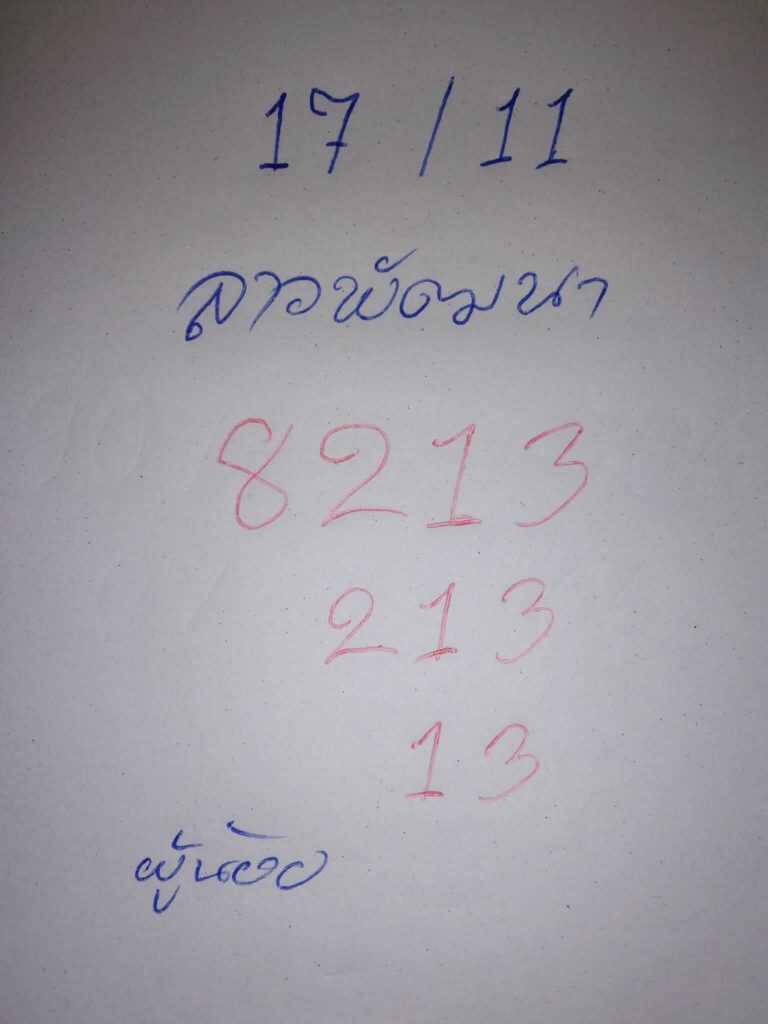 17 / 11
ลาวพัฒนา
8213
213
13
ผู้น้อย